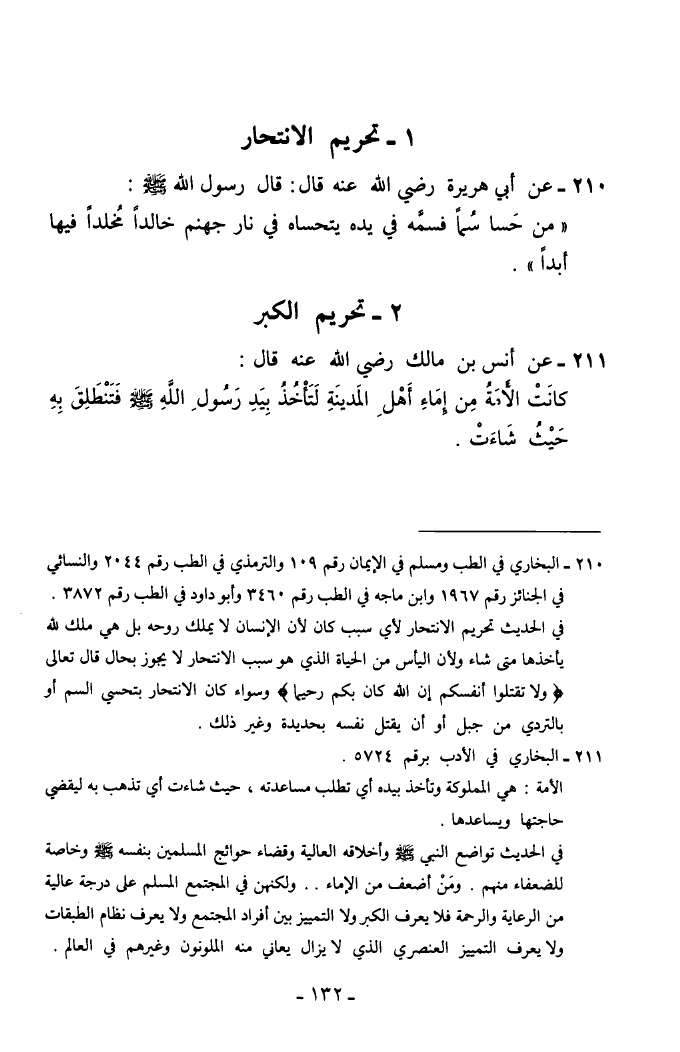 ١ - تحريم الانتحار
٢١٠ - عن أبي هريرة رضي الله عنه قال : قال رسول الله ﷺ :
« من حَسا سُماً فسمَّه في يده يتحساه في نار جهنم خالداً مُخلداً فيها
أبداً » .
٢ - تحريم الكبر
٢١١ - عن أنس بن مالك رضي الله عنه قال :
كانَتْ الأَمَةُ مِن إِمَاءِ أَهْلِ المَدينَةِ لَتَأْخُذُ بِيَدِ رَسُولِ اللَّهِ ﷺ فَتَنْطَلِقَ بِهِ
حَيْثُ شَاءَتْ .
٢١٠ - البخاري في الطب ومسلم في الإيمان رقم ١٠٩ والترمذي في الطب رقم ٢٠٤٤ والنسائي
في الجنائز رقم ١٩٦٧ وابن ماجه في الطب رقم ٣٤٦٠ وأبو داود في الطب رقم ٣٨٧٢ .
في الحديث تحريم الانتحار لأي سبب كان لأن الإنسان لا يملك روحه بل هي ملك لله
يأخذها متى شاء ولأن اليأس من الحياة الذي هو سبب الانتحار لا يجوز بحال قال تعالى
﴿ ولا تقتلوا أنفسكم إن الله كان بكم رحيما ﴾ وسواء كان الانتحار بتحسي السم أو
بالتردي من جبل أو أن يقتل نفسه بحديدة وغير ذلك .
٢١١ - البخاري في الأدب برقم ٥٧٢٤ .
الأمة : هي المملوكة وتأخذ بيده أي تطلب مساعدته ، حيث شاءت أي تذهب به ليقضي
حاجتها ويساعدها .
في الحديث تواضع النبي ﷺ وأخلاقه العالية وقضاء حوائج المسلمين بنفسه ﷺ وخاصة
للضعفاء منهم . ومَنْ أضعف من الإماء . . ولكنهن في المجتمع المسلم على درجة عالية
من الرعاية والرحمة فلا يعرف الكبر ولا التمييز بين أفراد المجتمع ولا يعرف نظام الطبقات
ولا يعرف التمييز العنصري الذي لا يزال يعاني منه الملونون وغيرهم في العالم .
- ١٣٢ -